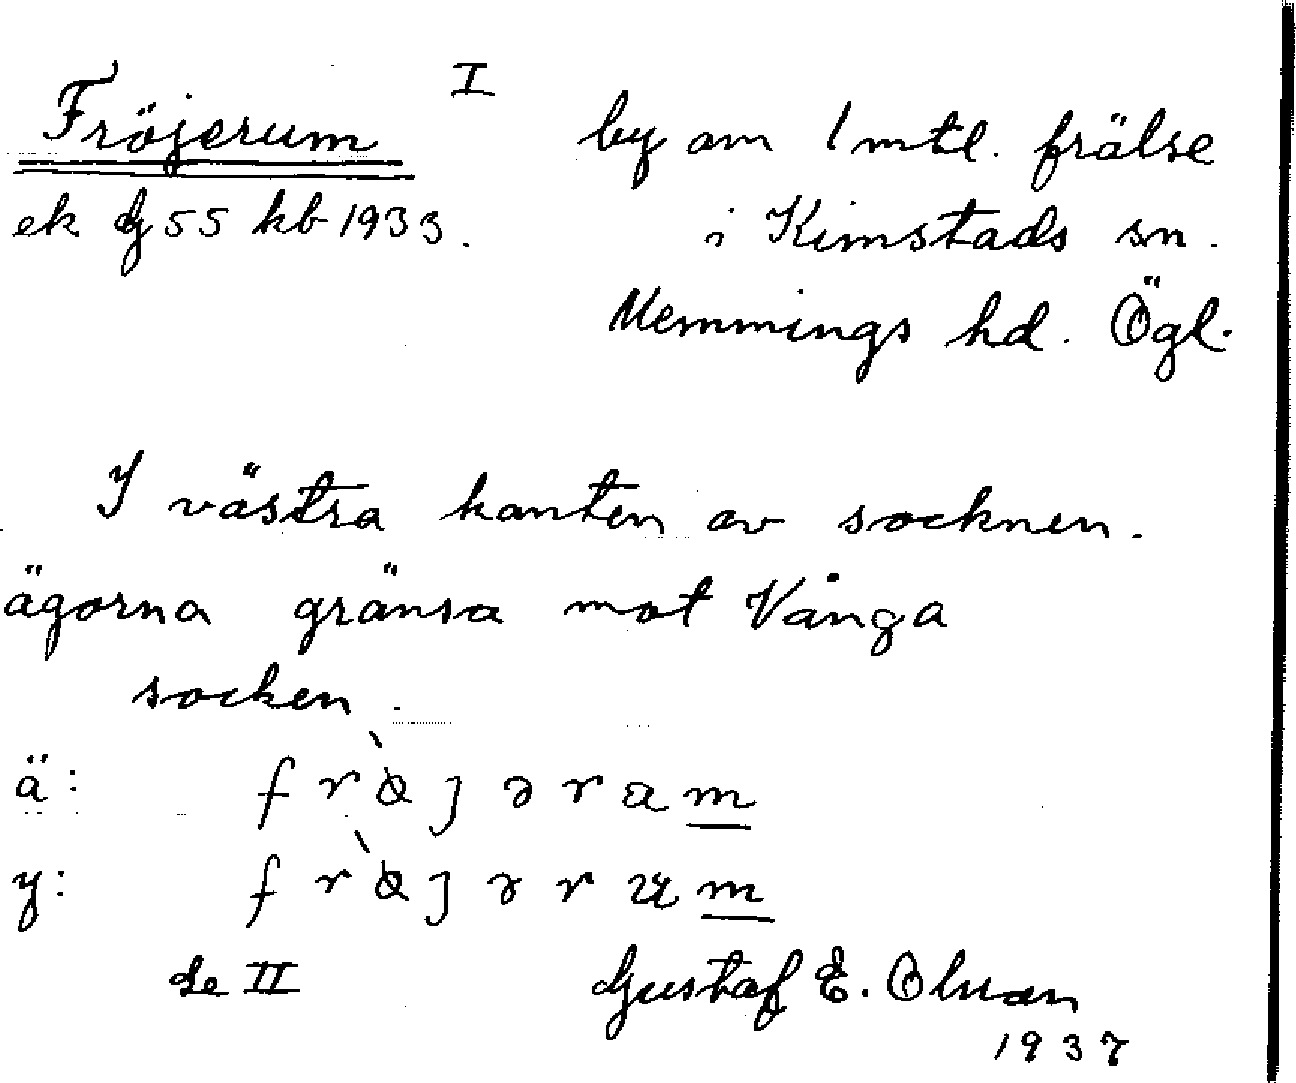 Fröjerum I by om 1 mtl. frälse
ek bg 55 kb 1933. i Kimstads sn.
Memmings hd. Ögl.
I västra kanten av socknen.
ägorna gränsa mot Vånga
socken.
ä: frö̀jəram
y: frö̀jərum
se II Gustaf E. Olsson
1937